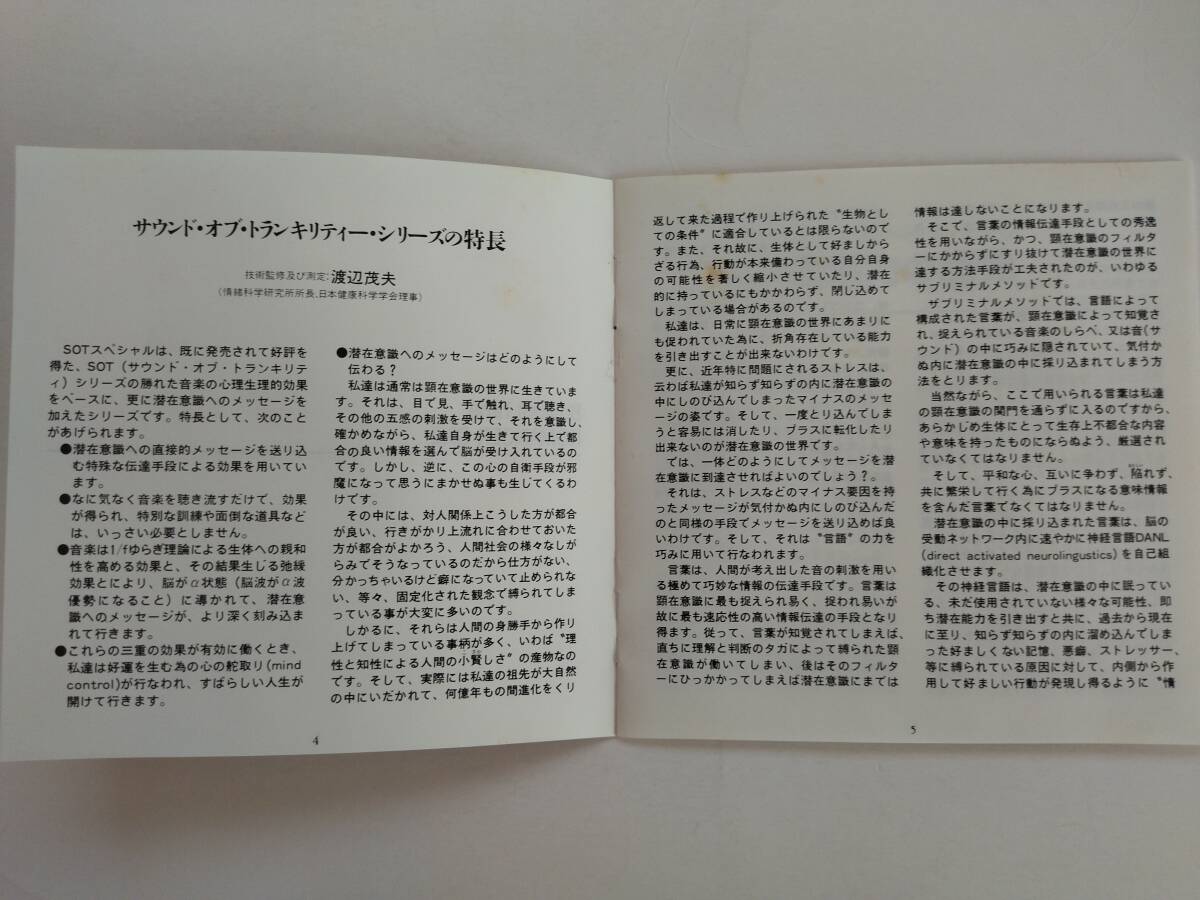 サウンド・オブ・トランキリティー・シリーズの特長
技術監修及び測定:渡辺茂夫
(情緒科学研究所所長、日本健康科学学会理事)
SOTスペシャルは、既に発売されて好評を
得た、SOT(サウンド・オブ・トランキリテ
ィ)シリーズの勝れた音楽の心理生理的効果
をベースに、更に潜在意識へのメッセージを
加えたシリーズです。特長として、次のこと
があげられます。
●潜在意識への直接的メッセージを送り込
む特殊な伝達手段による効果を用いてい
ます。
●なに気なく音楽を聴き流すだけで、効果
が得られ、特別な訓練や面倒な道具など
は、いっさい必要としません。
●音楽は1/fゆらぎ理論による生体への親和
性を高める効果と、その結果生じる弛緩
効果とにより、脳がα状態(脳波がα波
優勢になること)に導かれて、潜在意
識へのメッセージが、より深く刻み込ま
れて行きます。
●これらの三重の効果が有効に働くとき、
私達は好運を生む為の心の舵取り(mind
control)が行なわれ、すばらしい人生が
開けて行きます。
●潜在意識へのメッセージはどのようにして
伝わる?
私達は通常は顕在意識の世界に生きていま
す。それは、目で見、手で触れ、耳で聴き、
その他の五感の刺激を受けて、それを意識し、
確かめながら、私達自身が生きて行く上で都
合の良い情報を選んで脳が受け入れているの
です。しかし、逆に、この心の自衛手段が邪
魔になって思うにまかせぬ事も生じてくるわ
けです。
その中には、対人関係上こうした方が都合
が良い、行きがかり上流れに合わせておいた
方が都合がよかろう、人間社会の様々なしが
らみでそうなっているのだから仕方がない、
分かっちゃいるけど癖になっていて止められな
い、等々、固定化された観念で縛られてしま
っている事が大変に多いのです。
しかるに、それらは人間の身勝手から作り
上げてしまっている事柄が多く、いわば〝理
性と知性による人間の小賢しさ〟の産物なの
です。そして、実際には私達の祖先が大自然
の中にいだかれて、何億年もの間進化をくり
4
返して来た過程で作り上げられた〝生物とし
ての条件〟に適合しているとは限らないので
す。また、それ故に、生体として好ましから
ざる行為、行動が本来備わっている自分自身
の可能性を著しく縮小させていたり、潜在
的に持っているにもかかわらず、閉じ込めて
しまっている場合があるのです。
私達は、日常に顕在意識の世界にあまりに
も捉われていた為に、折角存在している能力
を引き出すことが出来ないわけです。
更に、近年特に問題にされるストレスは、
云わば私達が知らず知らずの内に潜在意識の
中にしのび込んでしまったマイナスのメッセ
ージの姿です。そして、一度とり込んでしま
うと容易には消したり、プラスに転化したり
出来ないのが潜在意識の世界です。
では、一体どのようにしてメッセージを潜
在意識に到達させればよいのでしょう?
それは、ストレスなどのマイナス要因を持
ったメッセージが気付かぬ内にしのび込んだ
のと同様の手段でメッセージを送り込めば良
いわけです。そして、それは〝言語〟の力を
巧みに用いて行なわれます。
言葉は、人間が考え出した音の刺激を用い
る極めて巧妙な情報の伝達手段です。言葉は
顕在意識に最も捉えられ易く、捉われ易いが
故に最も速応性の高い情報伝達の手段となり
得ます。従って、言葉が知覚されてしまえば、
直ちに理解と判断のタガによって縛られた顕
在意識が働いてしまい、後はそのフィルタ
ーにひっかかってしまえば潜在意識にまでは
情報は達しないことになります。
そこで、言葉の情報伝達手段としての秀逸
性を用いながら、かつ、顕在意識のフィルタ
ーにかからずにすり抜けて潜在意識の世界に
達する方法手段が工夫されたのが、いわゆる
サブリミナルメソッドです。
ザブリミナルメソッドでは、言語によって
構成された言葉が、顕在意識によって知覚さ
れ、捉えられている音楽のしらべ、又は音(サ
ウンド)の中に巧みに隠されていて、気付か
ぬ内に潜在意識の中に採り込まれてしまう方
法をとります。
当然ながら、ここで用いられる言葉は私達
の顕在意識の関門を通らずに入るのですから、
あらかじめ生体にとって生存上不都合な内容
や意味を持ったものにならぬよう、厳選され
ていなくてはなりません。
そして、平和な心、互いに争わず、陥れず、
共に繁栄して行く為にプラスになる意味情報
を含んだ言葉でなくてはなりません。
潜在意識の中に採り込まれた言葉は、脳の
受動ネットワーク内に速やかに神経言語DANL
(direct activated neurolingustics)を自己組
織化させます。
その神経言語は、潜在意識の中に眠ってい
る、未だ使用されていない様々な可能性、即
ち潜在能力を引き出すと共に、過去から現在
に至り、知らず知らずの内に溜め込んでしま
った好ましくない記憶、悪癖、ストレッサー、
等に縛られている原因に対して、内側から作
用して好ましい行動が発現し得るように〝情
5